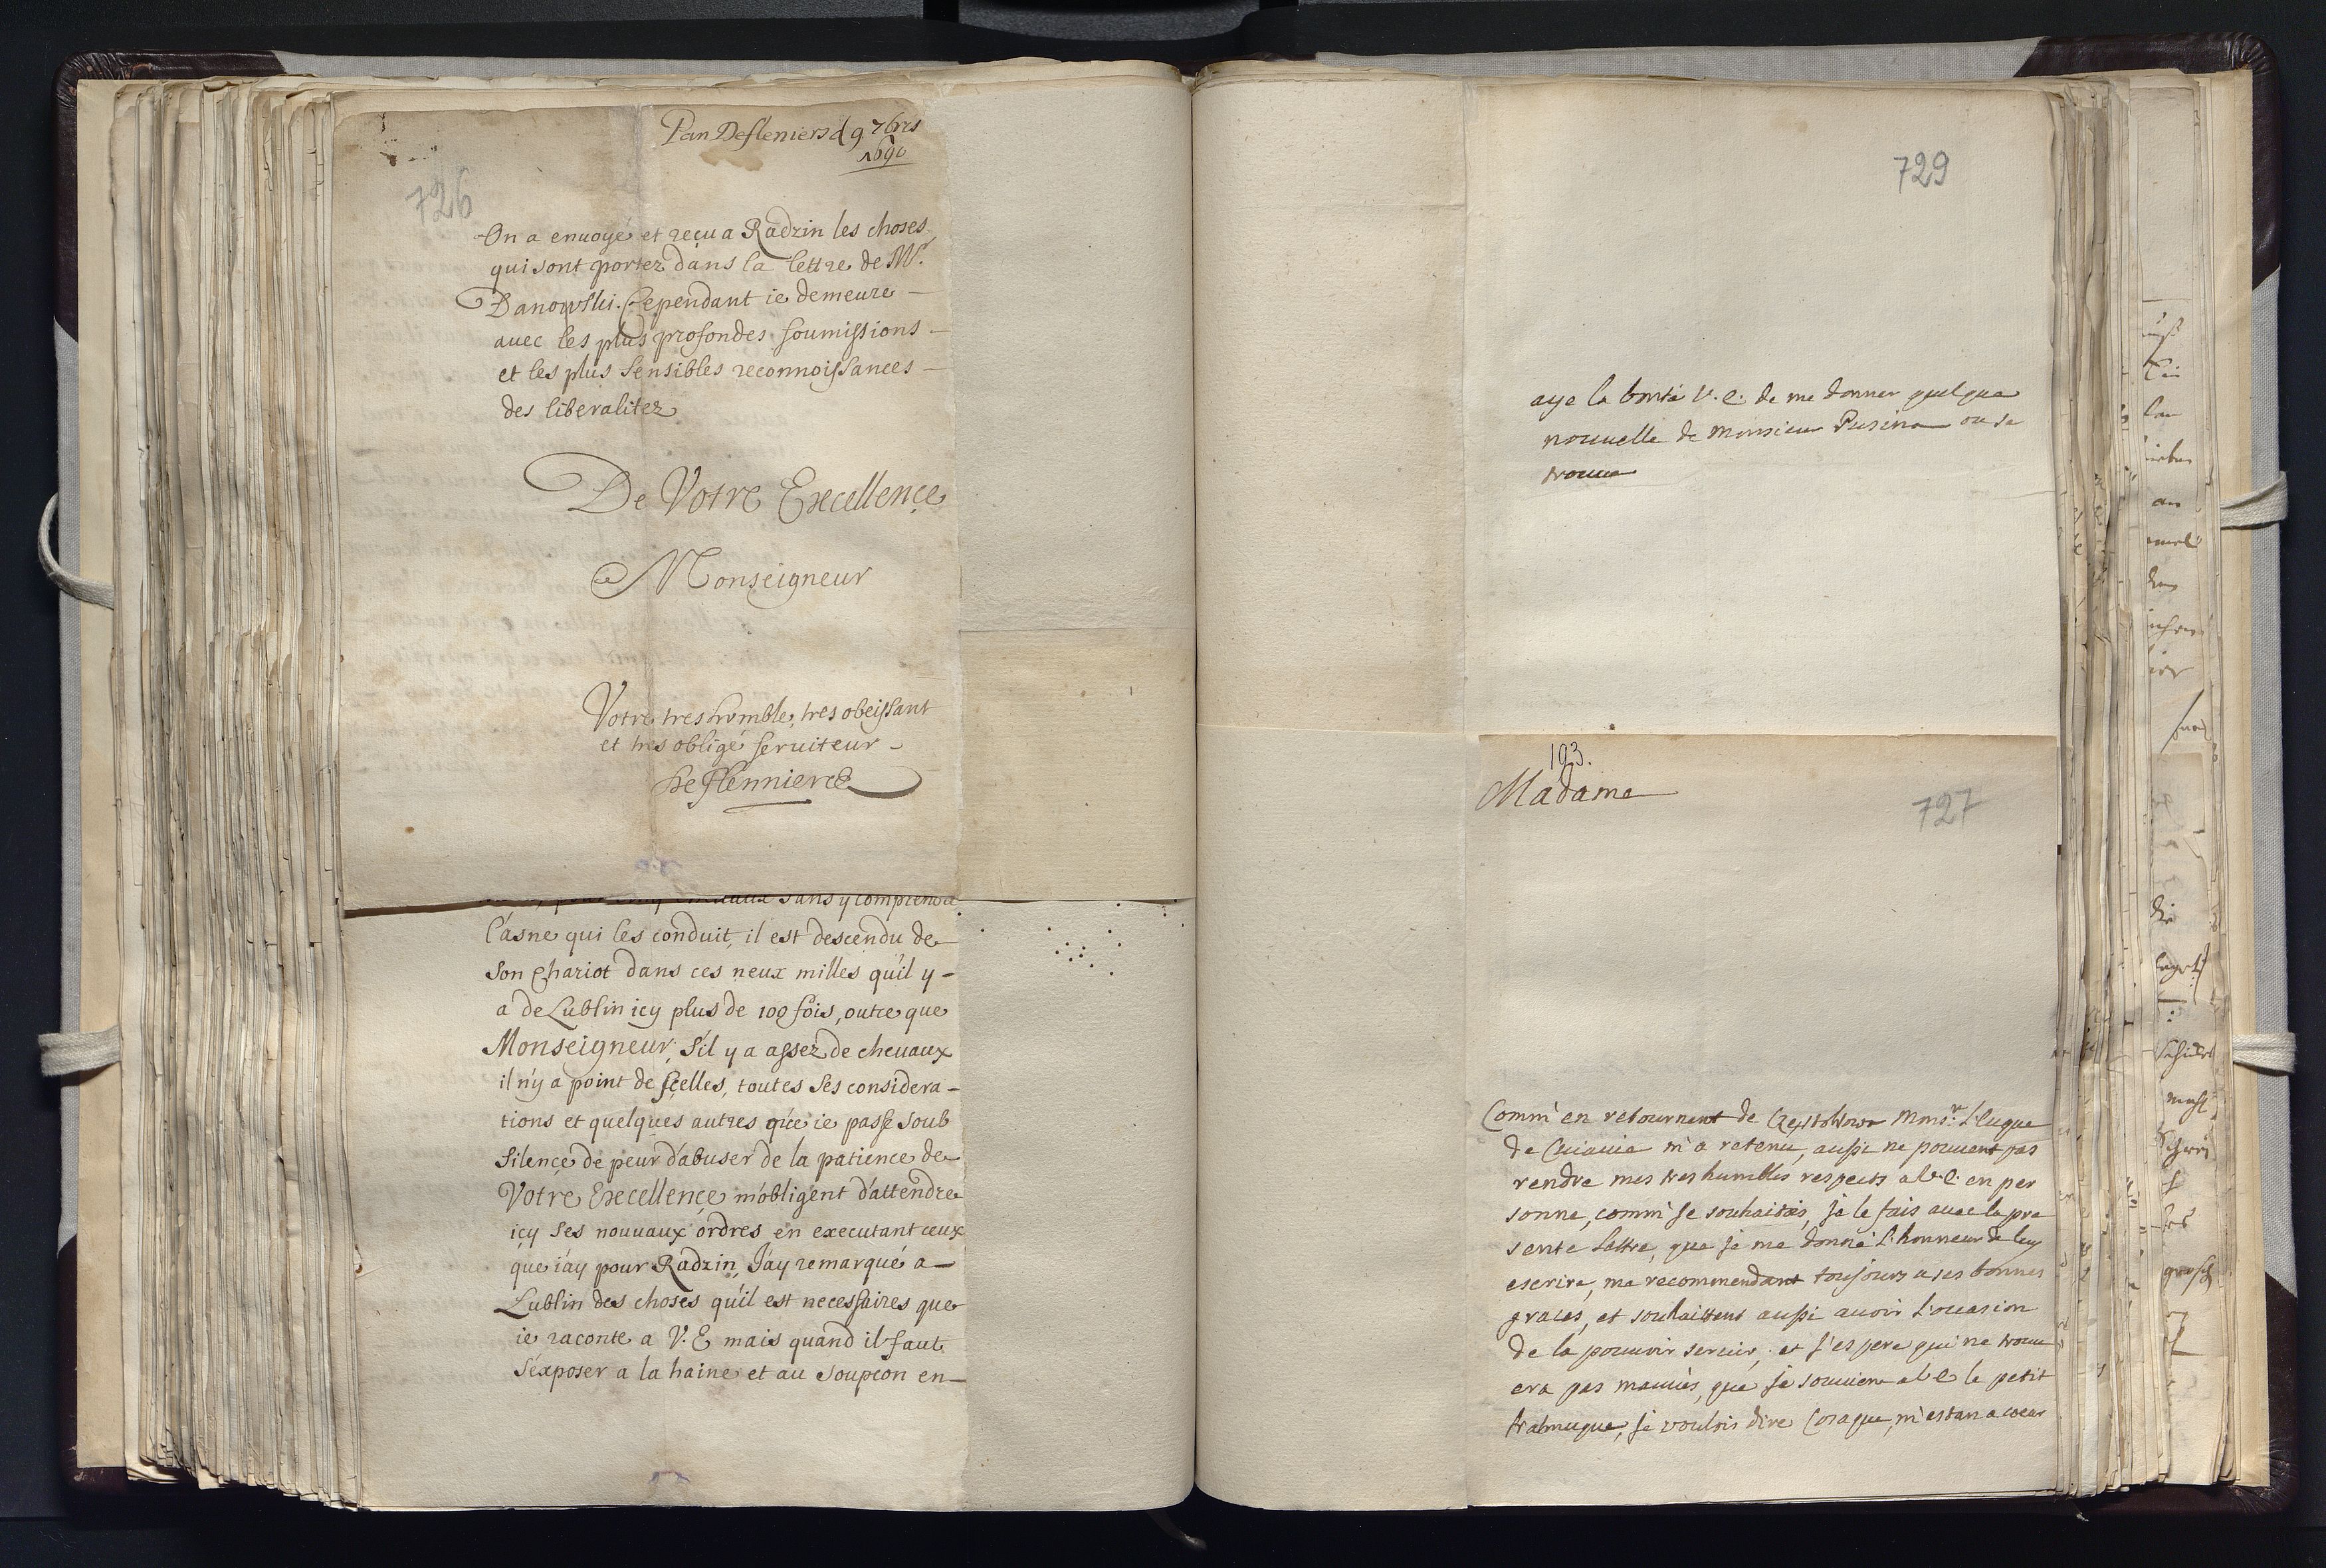 Pan Desleniers d 9 7bris
1690
726
On a enuoyé et reçu a Radzin les choses
qui sont portez dans la lettre de Mr.
Danowski. Cependant ie demeure
auec les plus profondes soumissions
et les plus sensibles reconnoissances
des liberalitez
De Votre Excellence
Monseigneur
Votre tres humble, tres obeissant
et tres obligé seruiteur
sans y comprendre
l'asne qui les conduit, il est descendu de
son chariot dans ces neux milles qu'il y
a de Lublin icy plus de 100 fois, outre que
Monseigneur, s'il y a assez de cheuaux
il n'y a point de scelles, toutes ses considera-
tions et quelques autres que ie passe soub
silence de peur d'abuser de la patience de
Votre Excellence m'obligent d'attendre
icy ses nouuaux ordres en executant ceux
que i'ay pour Radzin, J'ay remarqué a
Lublin des choses qu'il est necessaires que
ie raconte a V. E mais quand il faut
s'exposer a la haine et au soupcon en-
729
aye la bonté V. E. de me donner quelque
nouuelle de Monsieur ou se
trouue
193.
Madame
727
Comm' en retournent de Mons.r L'euque
de Cuiauie m'a retenu, aussi ne pouuent pas
rendre mes tres humbles respects a V. E. en per
sonne, comm' je souhaitois, je le fais auec la pre
sente Lettre, que je me donne l'honneur de luy
escrire, me recommendant toujours a ses bonnes
graces, et souhaittent aussi auoir l'ocasion
de la pouuoir seruir, et j'espere qui ne trouu
era pas mauuès, que je souuiene a V E le petit
je voulois dire Cosaque, m'estan a coeur